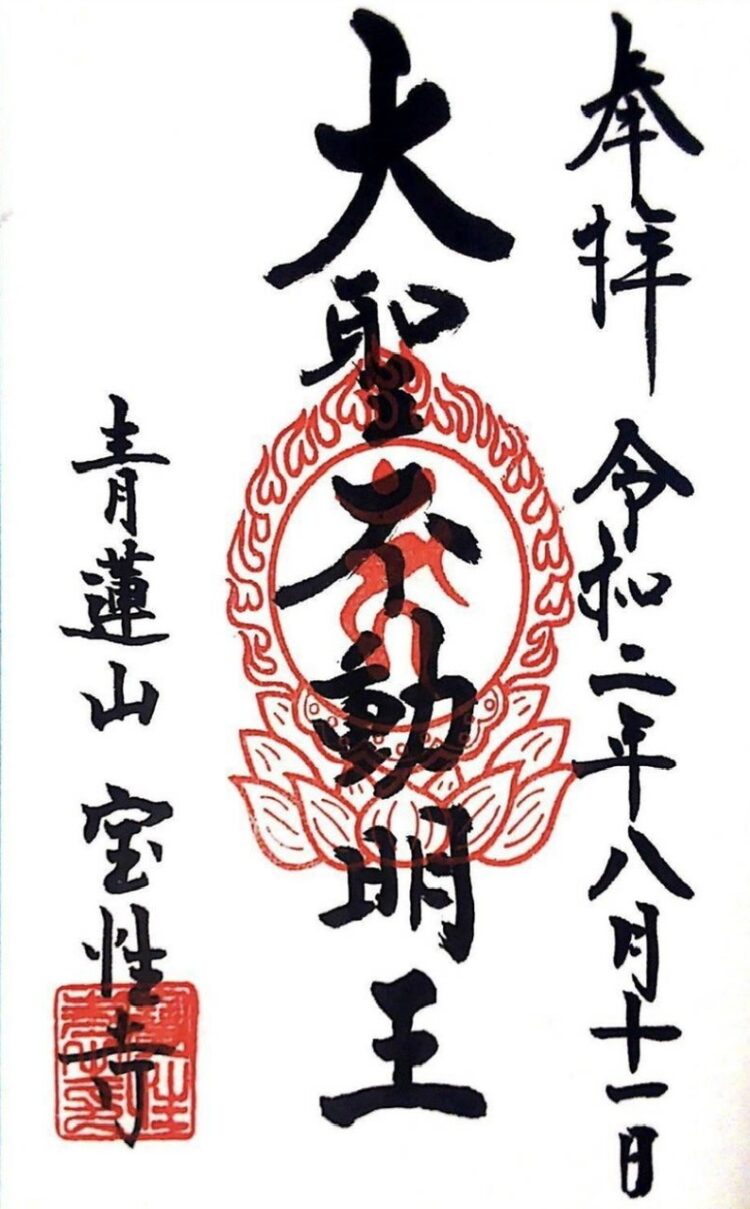 奉拝 令和二年八月十一日
大聖不動明王
青蓮山 宝性寺